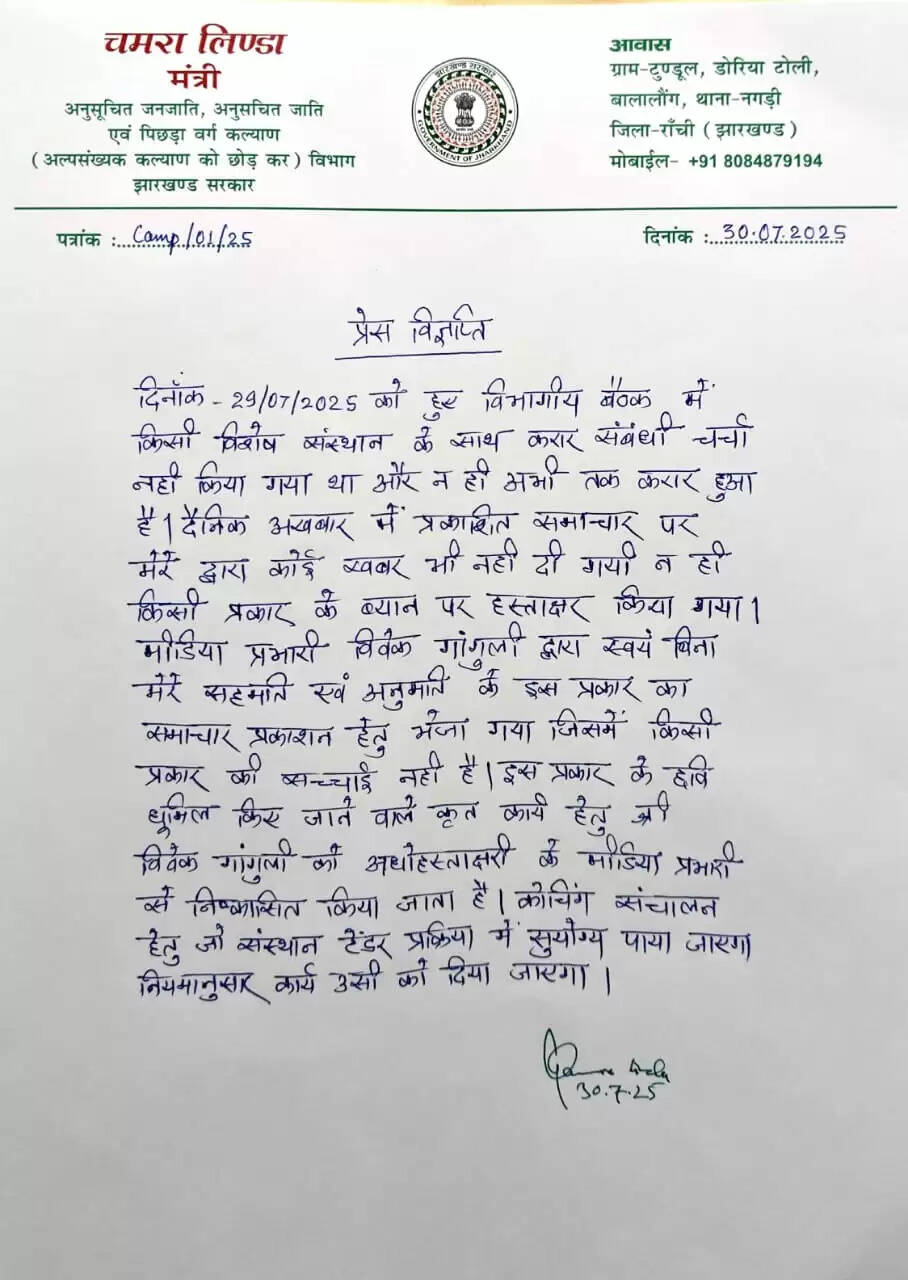 चमरा लिण्डा
मंत्री
अनुसूचित जनजाति, अनुसचित जाति
एवं पिछड़ा वर्ग कल्याण
(अल्पसंख्यक कल्याण को छोड़ कर) विभाग
झारखण्ड सरकार
झारखण्ड सरकार
GOVERNMENT OF JHARKHAND
आवास
ग्राम-टुण्डूल, डोरिया टोली,
बालालौंग, थाना-नगड़ी
जिला-राँची (झारखण्ड)
मोबाईल- +91 8084879194
पत्रांक :..Camp/01/25
दिनांक :..30.07.2025
प्रेस विज्ञप्ति
दिनाँक - 29/07/2025 को हुए विभागीय बैठक में
किसी विशेष संस्थान के साथ करार संबंधी चर्चा
नही किया गया था और न ही अभी तक करार हुआ
है। दैनिक अखबार में प्रकाशित समाचार पर
मेरे द्वारा कोई खबर भी नही दी गयी न ही
किसी प्रकार के ब्यान पर हस्ताक्षर किया गया।
मीडिया प्रभारी विवेक गांगुली द्वारा स्वयं बिना
मेरे सहमति एवं अनुमति के इस प्रकार का
समाचार प्रकाशन हेतु भेजा गया जिसमें किसी
प्रकार की सच्चाई नही है। इस प्रकार के छवि
धूमिल किए जाने वाले कृत कार्य हेतु श्री
विवेक गांगुली को अधोहस्ताक्षरी के मीडिया प्रभारी
से निष्कासित किया जाता है। कोचिंग संचालन
हेतु जो संस्थान टेंडर प्रक्रिया में सुयोग्य पाया जाएगा
नियमानुसार कार्य उसी को दिया जाएगा।
30.7.25